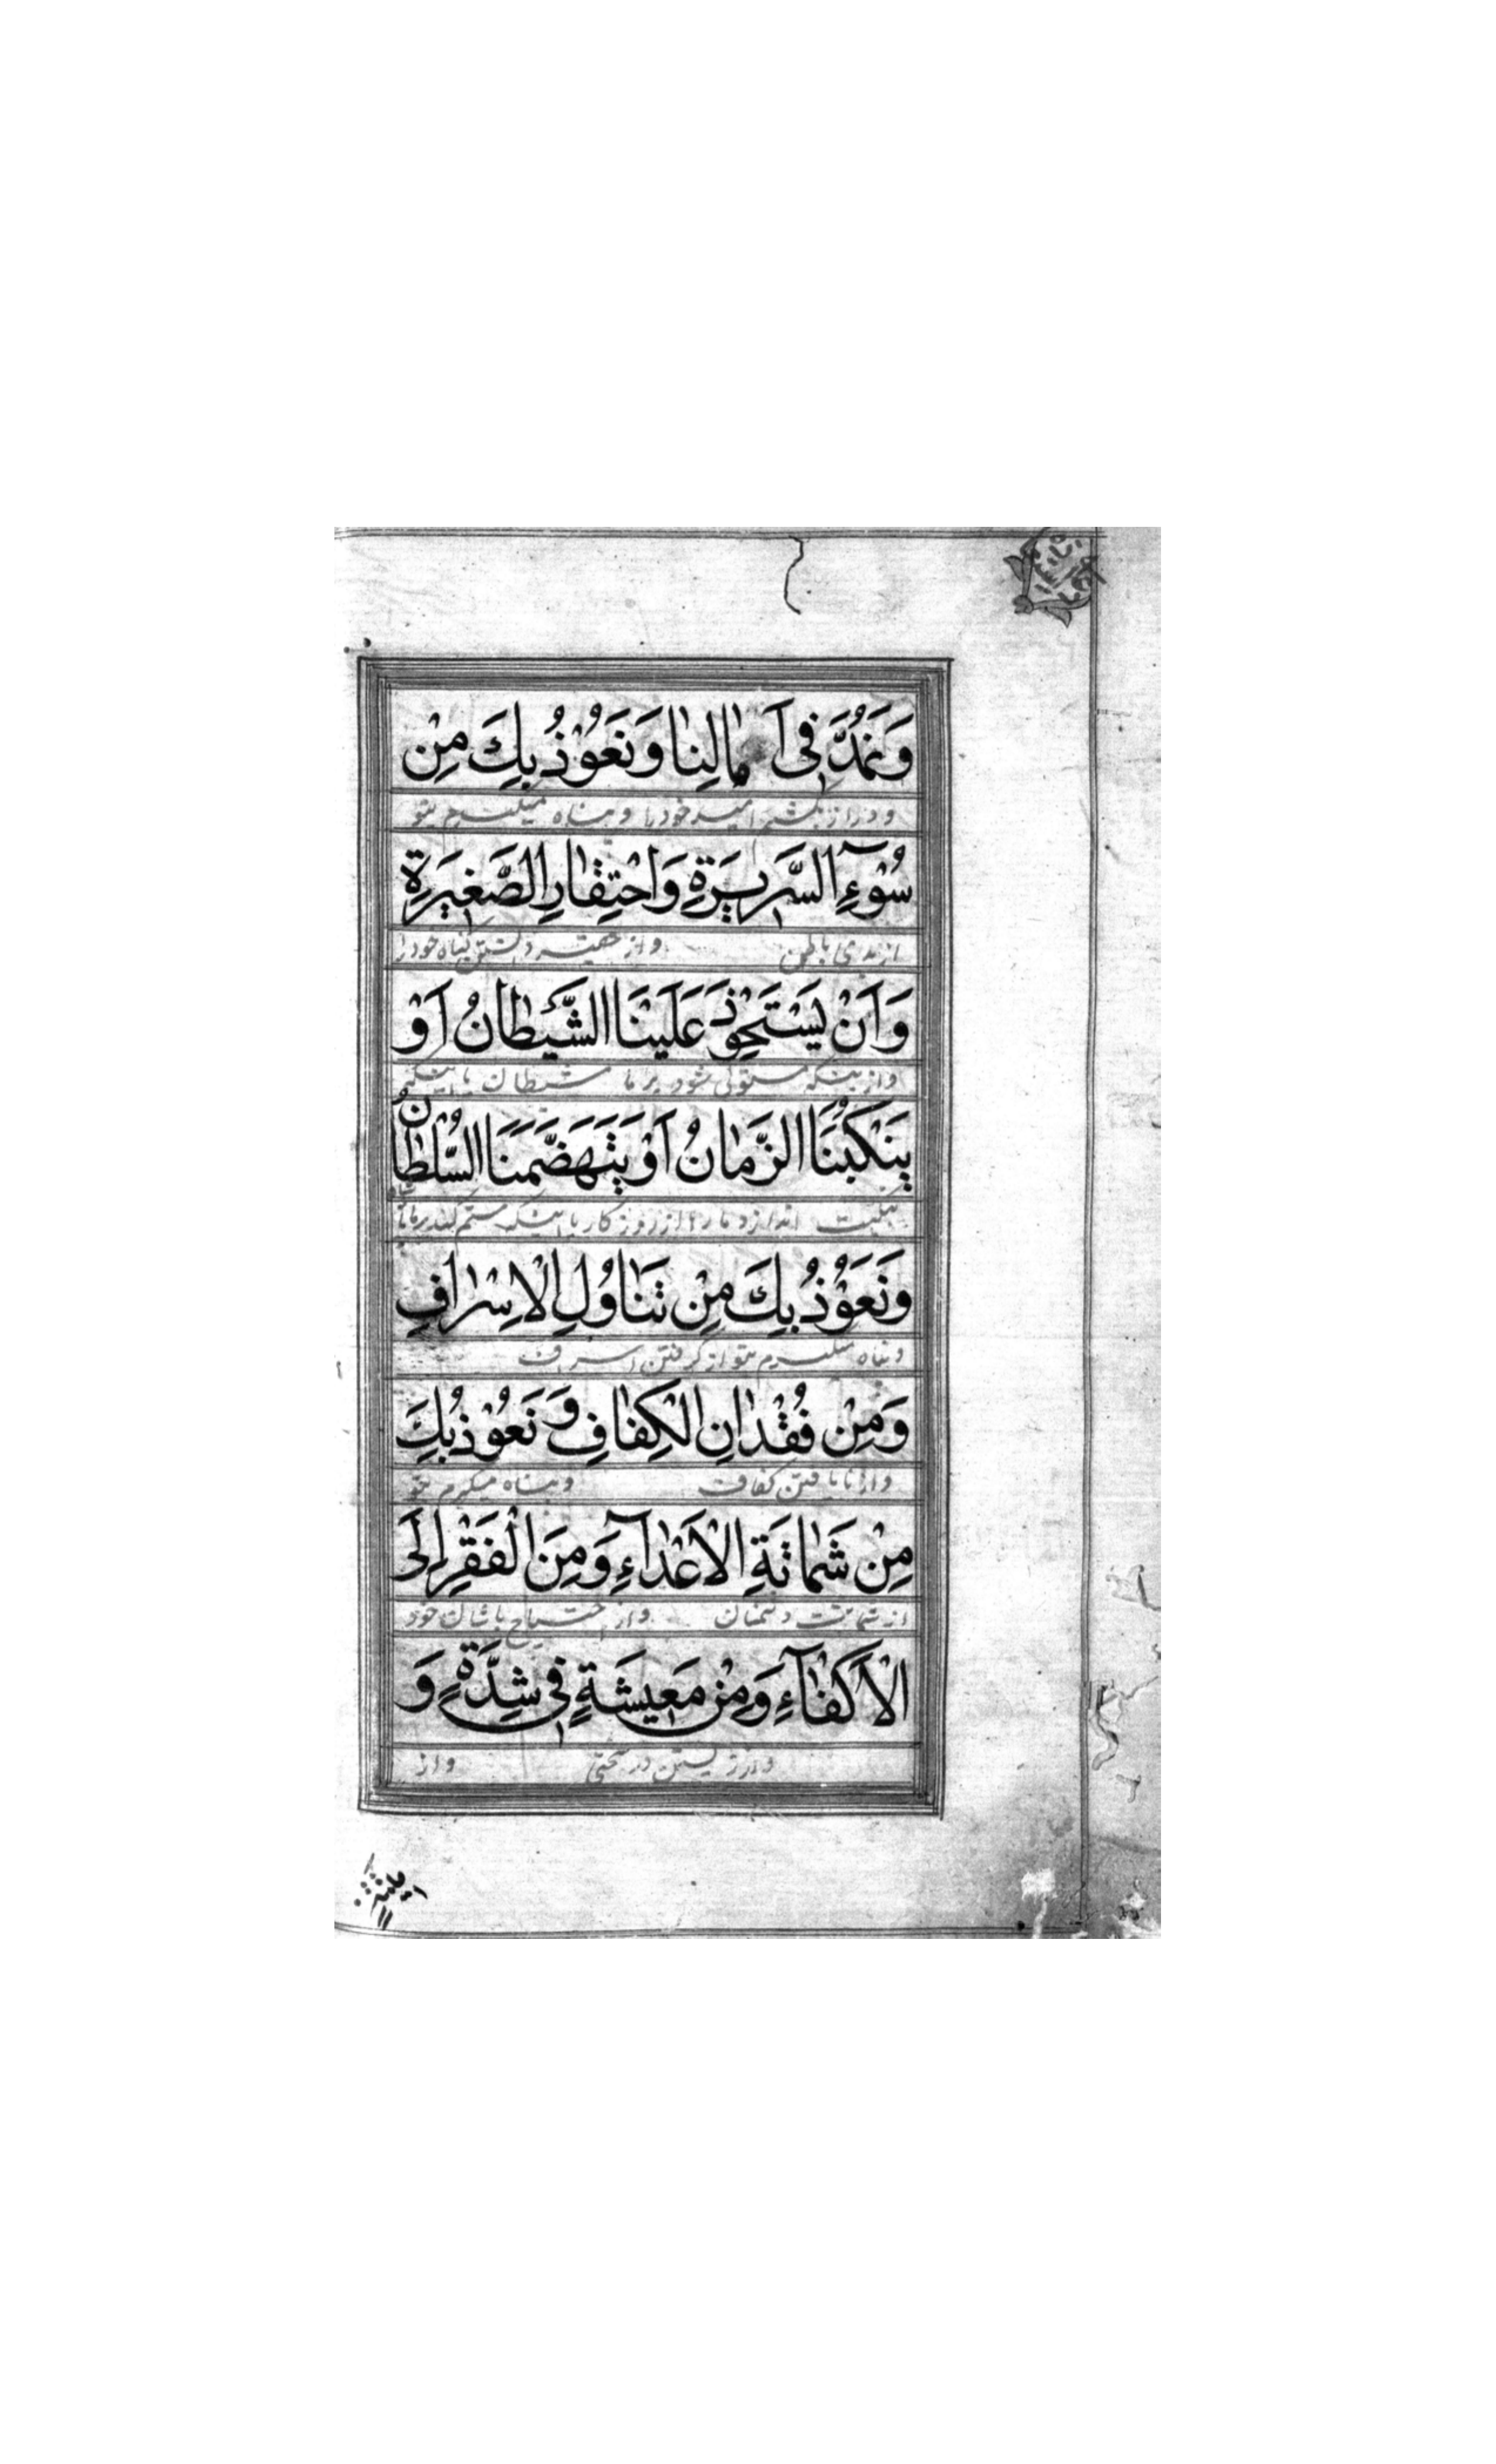 وَنَمُدَّ فِی آمٰالِنٰا وَنَعُوْذُ بِكَ مِنْ
و دراز بکشیم امید خود را و پناه میگیرم بتو
سُوْءِ السَّرِیرَةِ وَاحْتِقٰارِ الصَّغِیرَةِ
از بدی باطن و از حقیر داشتن گناه خورد
وَاَنْ یَسْتَحْوِذَ عَلَیْنَا الشَّیْطٰانُ اَوْ
و از اینکه مستولی شود بر ما شیطان یا اینکه
یَنْكُبَنَا الزَّمٰانُ اَوْ یَتَهَضَّمَنَا السُّلْطٰانُ
بنکبت اندازد ما را از روزگار یا اینکه ستم کند بر ما
وَنَعُوْذُ بِكَ مِنْ تَنٰاوُلِ الْاِسْرٰافِ
و پناه میگیرم بتو از گرفتن اسراف
وَمِنْ فُقْدٰانِ الْكِفٰافِ وَنَعُوْذُ بِكَ
و از نا یافتن کفاف و پناه میگیرم بتو
مِنْ شَمٰاتَةِ الْاَعْدٰآءِ وَمِنَ الْفَقْرِ اِلَی
از شماتت دشمنان و از احتیاج بامثال خود
الْاَكْفٰآءِ وَمِنْ مَعِیشَةٍ فِی شِدَّةٍ وَ
و از زیستن در سختی و از